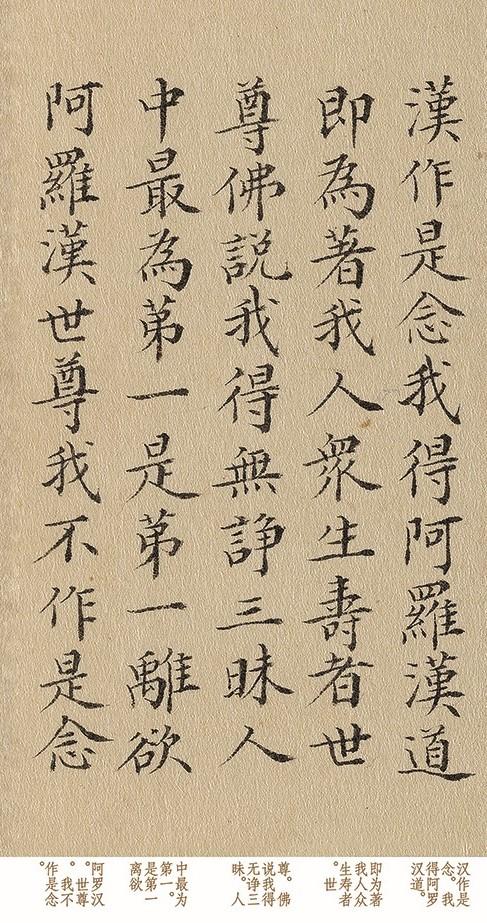 漢作是念我得阿羅漢道
即為著我人衆生壽者世
尊佛説我得無諍三昧人
中最為苐一是苐一離欲
阿羅漢世尊我不作是念
汉作是
念。我
得阿罗
汉道。
即为著
我人众
生寿者
。世
尊。佛
说我得
无诤三
昧。人
中最为
第一。
是第一
离欲
阿罗汉
。世尊
。我不
作是念
。